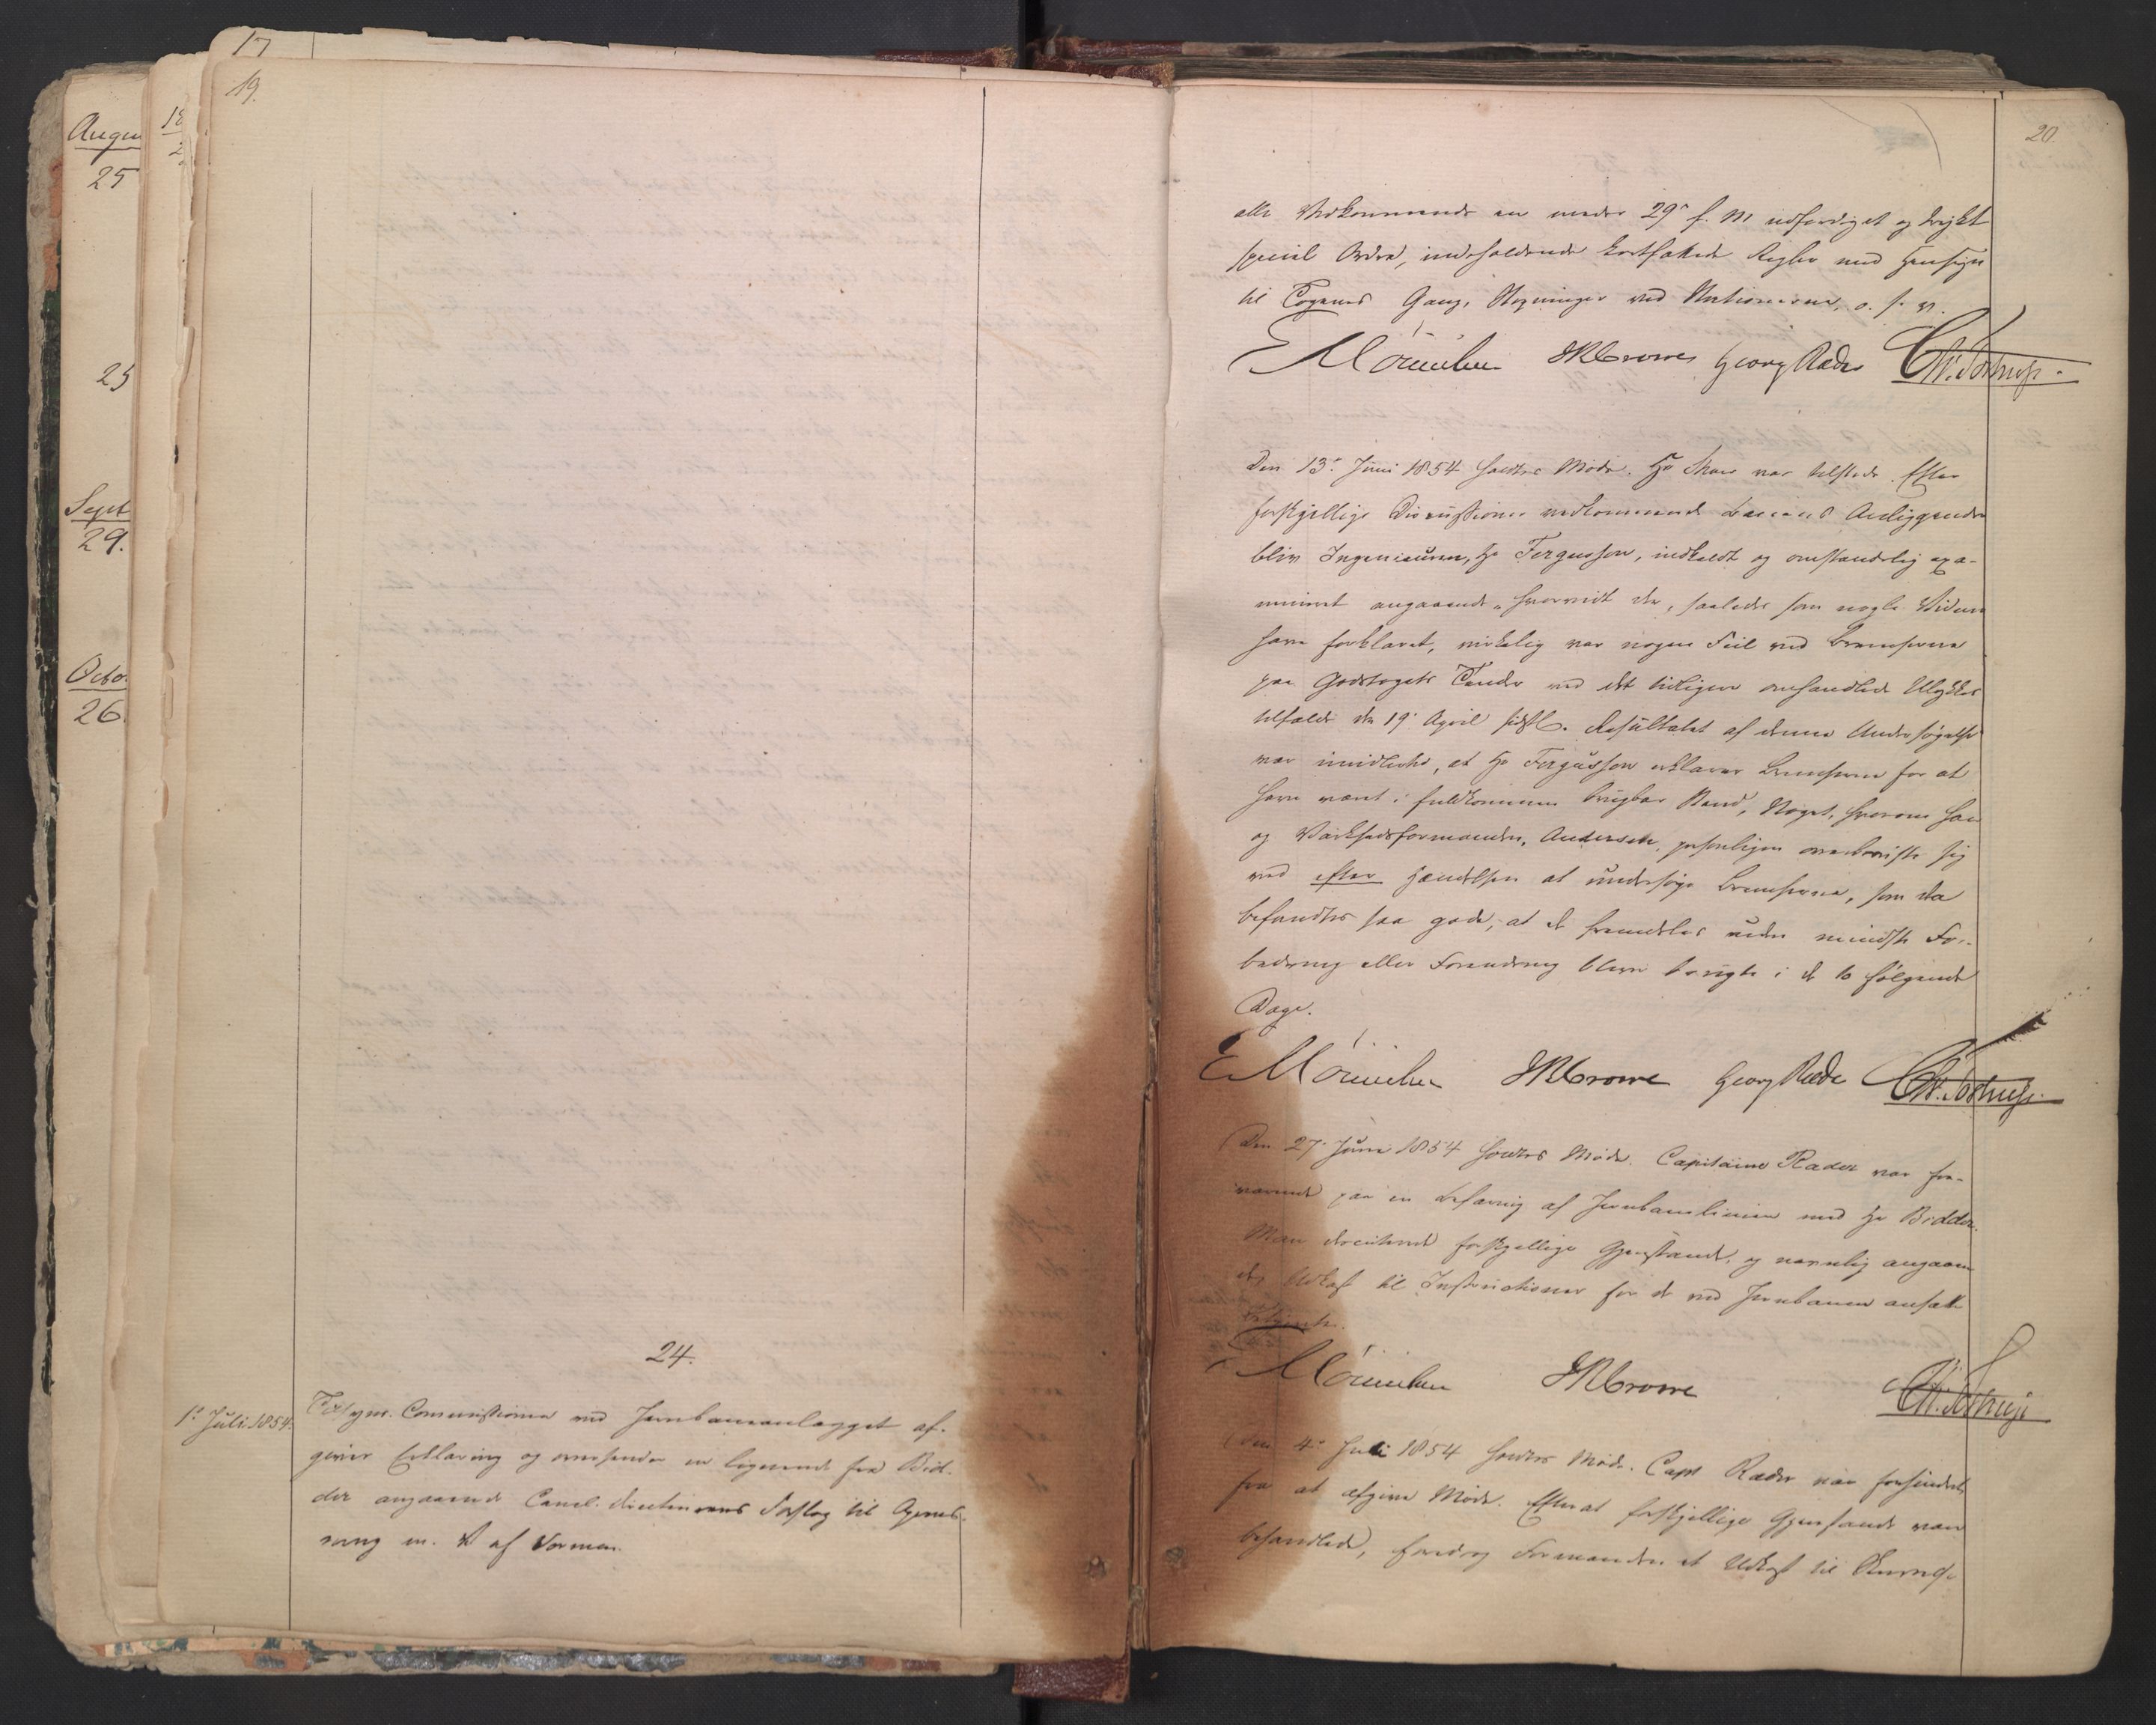 17
19.
Augu
25
25
Sept
29.
Octo.
26.
18
2
24.
1' Juli 1854.
Tilsyns-Commissionen ved Jernbaneanlægget af-
giver Erklæring og oversender en lignende fra Bid-
der angaaende Canal-Directionens Forslag til Opmud-
ring m. V. af Vormen.
20.
alle Vedkommende en under 29' f. M. udfærdiget og trykt
speciel Ordre, indeholdende kortfattede Regler med Hensyn
til Togenes Gang, Stopninger ved Stationerne, o. s. v.
JRCrowe Georg Ræder Chr. Tostrup.
Den 13' Juni 1854 holdtes Møde. Hr var tilstede. Efter
forskjellige Discussioner vedkommende Banens Anliggender
blev Ingenieuren, Hr Fergusson, indkaldt og omstændelig exa-
mineret angaaende, hvorvidt der, saaledes som nogle Vidner
have forklaret, virkelig var nogen Feil ved Bremserne
paa Godstogets Tender ved det tidligere omhandlede Ulykkes-
tilfælde den 19' April sidstl. Resultatet af denne Undersøgelse
var imidlertid, at Hr Fergusson erklærer Bremserne for at
have været i fuldkommen brugbar Stand, Noget, hvorom han
og Værkstedsformanden, Andersen, personligen overbeviste sig
ved efter Hændelsen at undersøge Bremserne, som da
befandtes saa gode, at de fremdeles uden mindste For-
bedring eller Forandring bleve brugte i de to følgende
Dage.
JRCrowe Georg Ræder Chr. Tostrup.
Den 27' Juni 1854 holdtes Møde. Capitaine Ræder var fra-
værende paa en Befaring af Jernbanelinien med Hr Bidder.
Man discuterede forskjellige Gjenstande, og navnlig angaaen-
de Udkast til Instructioner for de ved Jernbanen ansatte
Betjente.
JRCrowe Chr. Tostrup
Den 4' Juli 1854 holdtes Møde. Capt Ræder var forhindret
fra at afgive Møde. Efterat forskjellige Gjenstande vare
behandlede, foredrog Formanden et Udkast til